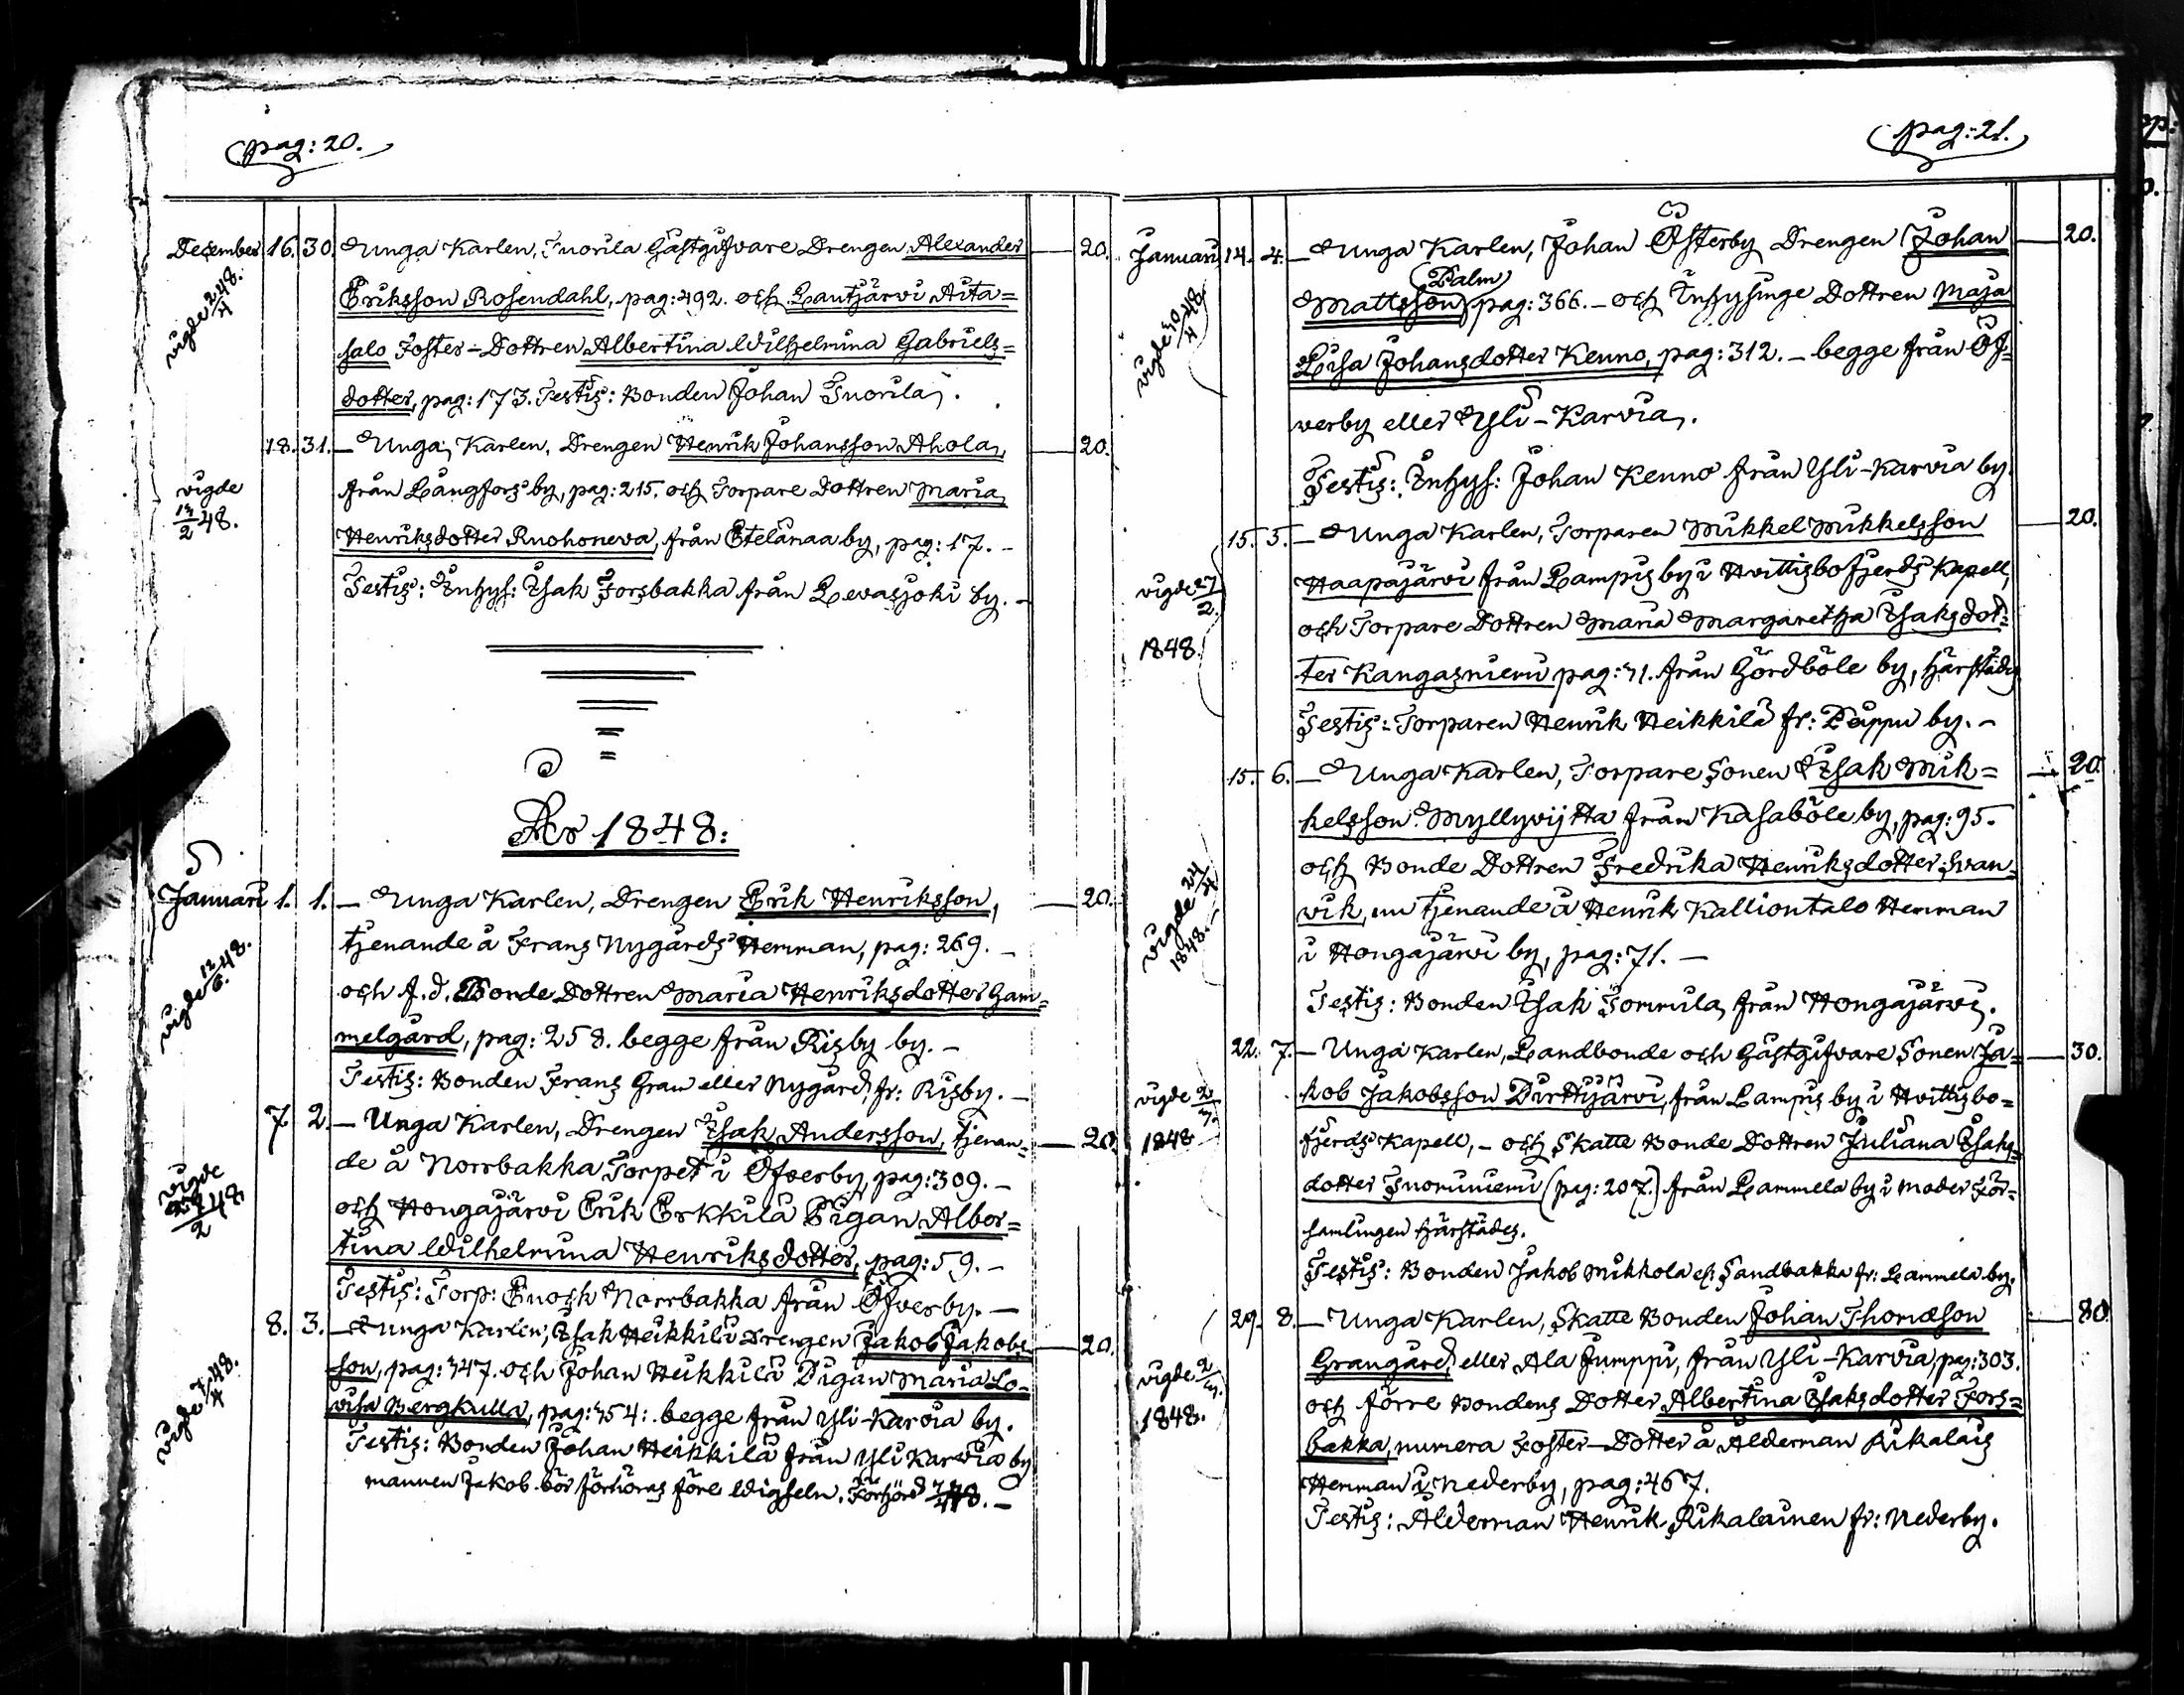 pag: 20.
December 16. 30. Unga Karlen, Tuorila Gästgifvare Drengen Alexander — 20.
vigde 2/4 48.
Eriksson Rosendahl, pag: 492. och Lautjärvi Aita=
salo Foster-Dottren Albertina Wilhelmina Gabriels=
dotter, pag: 173. Testis: Bonden Johan Tuorila.
18. 31. — Unga Karlen, Drengen Henrik Johansson Ahola, — 20.
vigde
13/2 48.
från Långfors by, pag: 215. och Torpare Dottren Maria
Henriksdotter Ruohoneva, från Etelänaa by, pag: 17. —
Testis: Inhys: Isak Forsbakka från Levasjoki by. —
År 1848:
Januari 1. 1. — Unga Karlen, Drengen Erik Henriksson, — 20.
vigde 12/6 48.
tjenande å Frans Nygårds Hemman, pag: 269. —
och f. d. Bonde Dottren Maria Henriksdotter Gam=
melgård, pag: 258. begge från Risby by. —
Testis: Bonden Frans Gran eller Nygård, fr: Risby. —
7. 2. — Unga Karlen, Drengen Isak Andersson, tjenan= — 20.
vigde
48
de å Norrbakka Torpet i Öfverby, pag: 309. —
och Hongajärvi Erik Erkkilä Pigan Alber=
tina Wilhelmina Henriksdotter, pag: 59. —
Testis: Torp: Enoch Norrbakka från Öfverby. —
8. 3. — Unga Karlen, Isak Heikkilä Drengen Jakob Jakobs= — 20.
vigde 7/4 48.
son, pag: 347. och Johan Heikkilä Pigan Maria Lo=
visa Bergkulla, pag: 354: begge från Yli-Karvia by.
Testis: Bonden Johan Heikkilä från Yli Karvia by
mannen Jakob bör förhöras före Wigseln. Förhörd
pag: 21.
Januari 14. 4. — Unga Karlen, Johan Österby Drengen Johan — 20.
vigde 30/4 48
(Palm)
Mattsson, pag: 366. — och Inhysinge Dottren Maja
Lisa Johansdotter Kenno, pag: 312. — begge från Öf=
verby eller Yli-Karvia.
Testis: Inhys: Johan Kenno från Yli-Karvia by.
15. 5. — Unga Karlen, Torparen Mikkel Mikkelsson — 20.
vigde 27/2.
1848.
Haapajärvi från Lampis by i Hvittisbofjerds Kapell,
och Torpare Dottren Maria Margaretha Isaksdot=
ter Kangasniemi pag: 31. från Hördböle by, härstädes
Testis: Torparen Henrik Heikkilä fr: Päppu by. —
15. 6. — Unga Karlen, Torpare Sonen Isak Mik= — 20.
vigde 24/4
1848.
kelsson Myllyvijtta från Kasaböle by, pag: 95.
och Bonde Dottren Fredrika Henriksdotter Svan=
vik, nu tjenande å Henrik Kalliontalo Hemman
i Hongajärvi by, pag: 71. —
Testis: Bonden Isak Tommila från Hongajärvi.
22. 7. — Unga Karlen, Landbonde och Gästgifvare Sonen Ja= — 30.
vigde 2/3
1848
kob Jakobsson Dirttijärvi, från Lampis by i Hvittisbo=
fjerds Kapell, — och Skatte Bonde Dottren Juliana Isaks=
dotter Suoruniemi (pag: 207.) från Lammela by i Moder För=
samlingen härstädes.
Testis: Bonden Jakob Mikkola el: Sandbakka fr: Lammela by.
29. 8. — Unga Karlen, Skatte Bonden Johan Thomasson — 80
vigde 2/3
1848.
Grangård, eller Ala Jumppi, från Yli-Karvia, pag: 303.
och förre Bondens Dotter Albertina Isaksdotter Fors=
bakka, numera Foster-Dotter å Alderman Rikalais
Hemman i Nederby, pag: 467.
Testis: Alderman Henrik Rikalainen fr: Nederby.